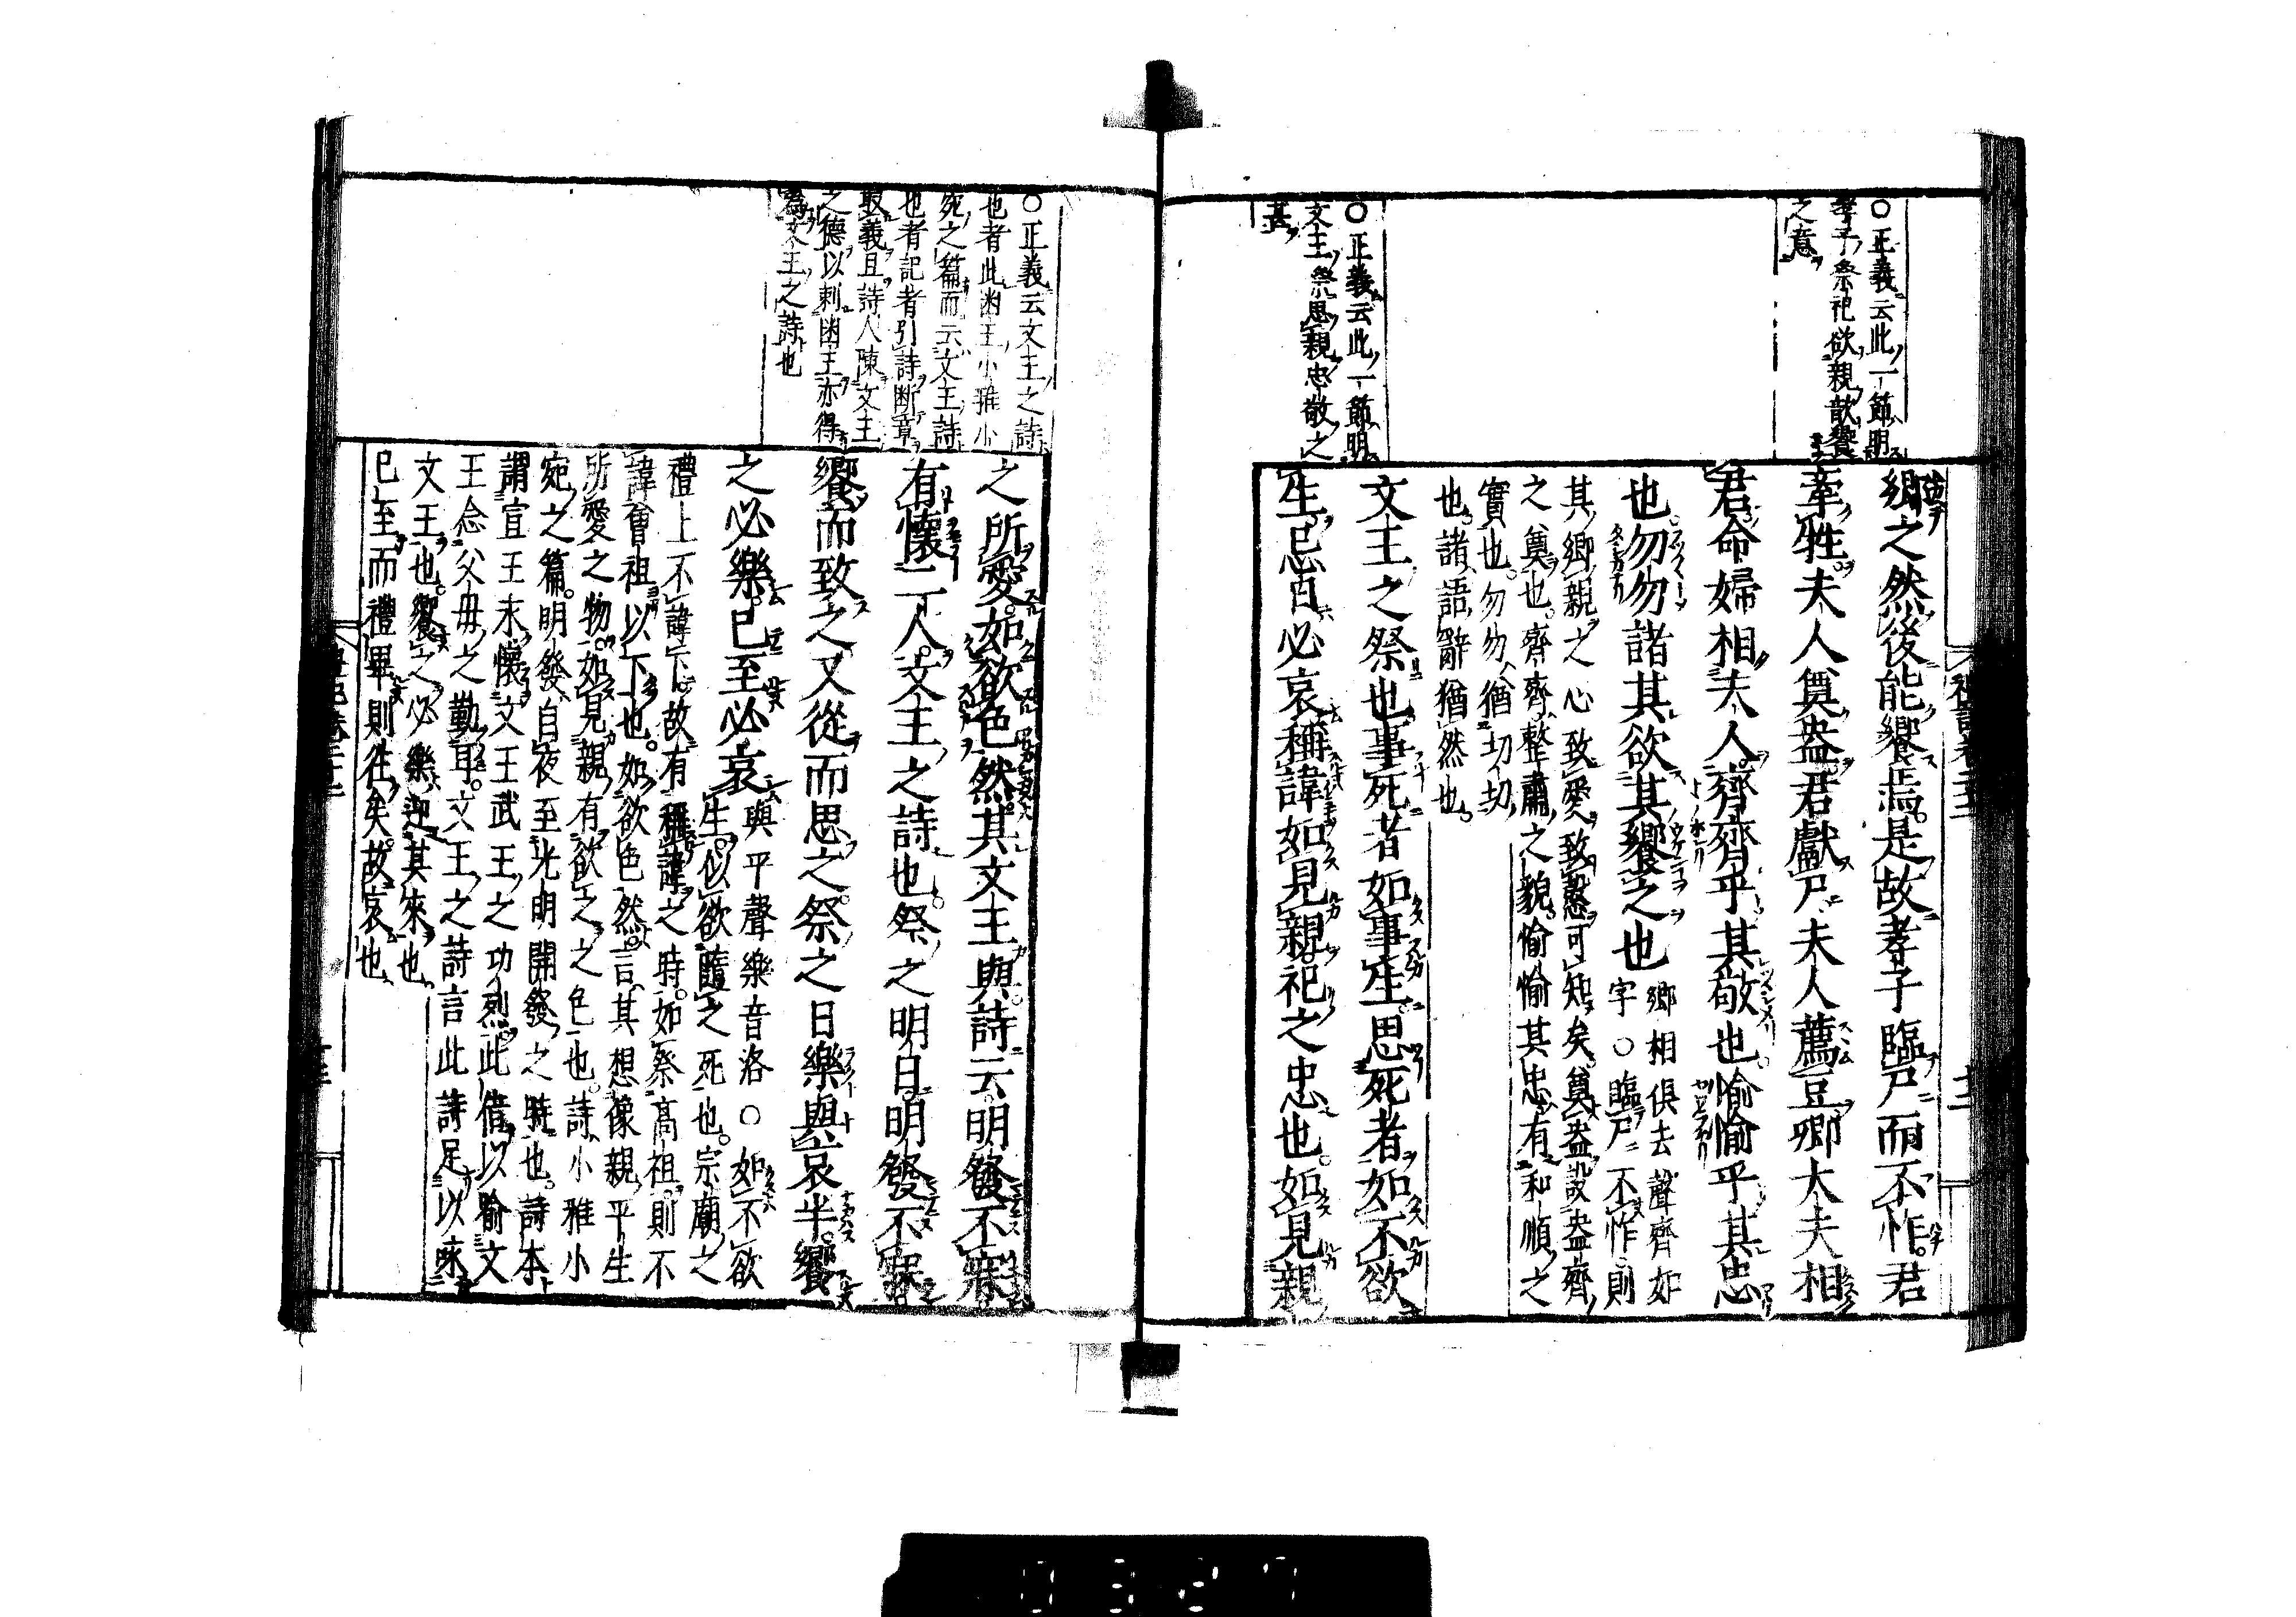 ○正義云此一節明
孝子祭祀欲親歆饗
之意
鄉之然後能饗焉是故孝子臨尸而不怍君
牽牲夫人奠盎君獻尸夫人薦豆卿大夫相
君命婦相夫人齊齊乎其敬也愉愉乎其忠
也勿勿諸其欲其饗之也
鄉相俱去聲齊如
字○臨尸不怍則
其鄉親之心致愛致慤可知矣奠盎設盎齊
之奠也齊齊整肅之貌愉愉其忠有和順之
實也勿勿猶切切
也諸語辭猶然也
○正義云此一節明
文王祭思親忠敬之
甚
文王之祭也事死者如事生思死者如不欲
生忌日必哀稱諱如見親祀之忠也如見親
○正義云文王之詩
也者此幽王小雅小
宛之篇而云文王詩
也者記者引詩断章
取義且詩人陳文王
之德以刺幽王亦得
為文王之詩也
之所愛如欲色然其文王與詩云明發不寐
有懷二人文王之詩也祭之明日明發不寐
饗而致之又從而思之祭之日樂與哀半饗
之必樂已至必哀
與平聲樂音洛○如不欲
生似欲隨之死也宗廟之
禮上不諱下故有稱諱之時如祭高祖則不
諱曾祖以下也如欲色然言其想像親平生
所愛之物如見親有欲之之色也詩小雅小
宛之篇明發自夜至光明開發之時也詩本
謂宣王永懷文王武王之功烈此借以喻文
王念父母之勤耳文王之詩言此詩足以咏
文王也饗之必樂迎其來也
已至而禮畢則往矣故哀也